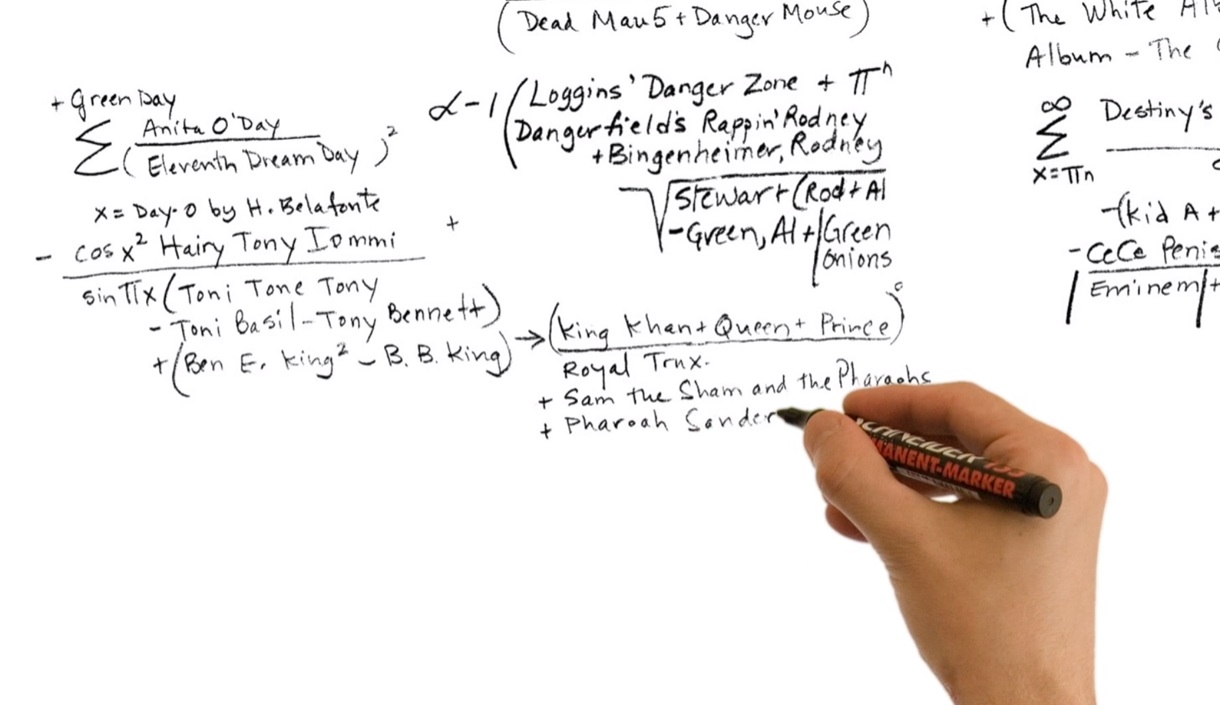 (Dead Mau5 + Danger Mouse)
+ (The White
Album - The
+ Green Day
Σ (Anita O'Day
Eleventh Dream Day)²
x = Day-O by H. Belafonte
- cos x² Hairy Tony Iommi
sin πx (Toni Tone Tony
- Toni Basil - Tony Bennett)
+ (Ben E. King² - B.B. King)
α-1 (Loggins' Danger Zone + πⁿ
Dangerfield's Rappin' Rodney
+ Bingenheimer, Rodney
√Stewart (Rod + Al
- Green, Al + |Green
Onions
+
→ (King Khan + Queen + Prince)
Royal Trux.
+ Sam the Sham and the Pharaohs
+ Pharoah Sander
∞
Σ Destiny's
x = πn
-(Kid A +
- CeCe
|Eminem| +
SCHNEIDER
PERMANENT-MARKER